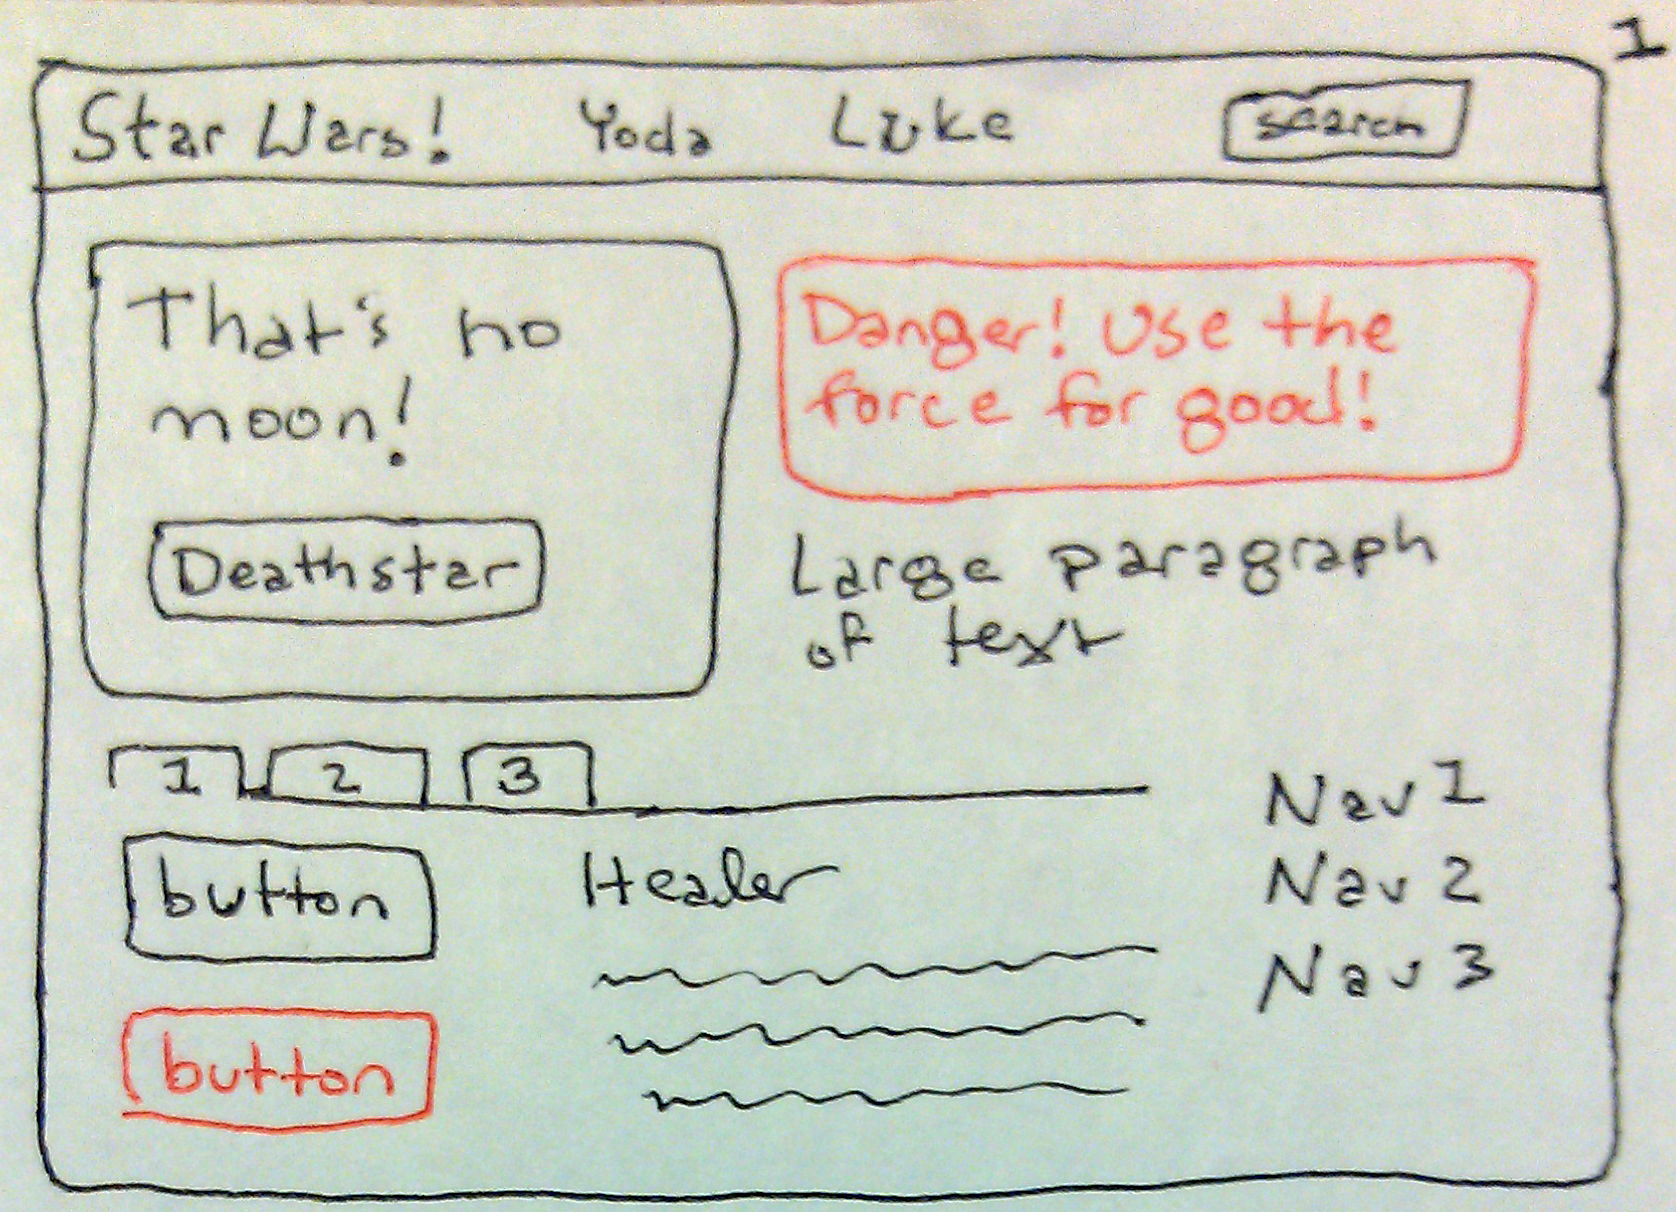 1
Star Wars! Yoda Luke search
That's no
moon!
Deathstar
Danger! Use the
force for good!
Large paragraph
of text
1 2 3
button
button
Header
Nav 1
Nav 2
Nav 3